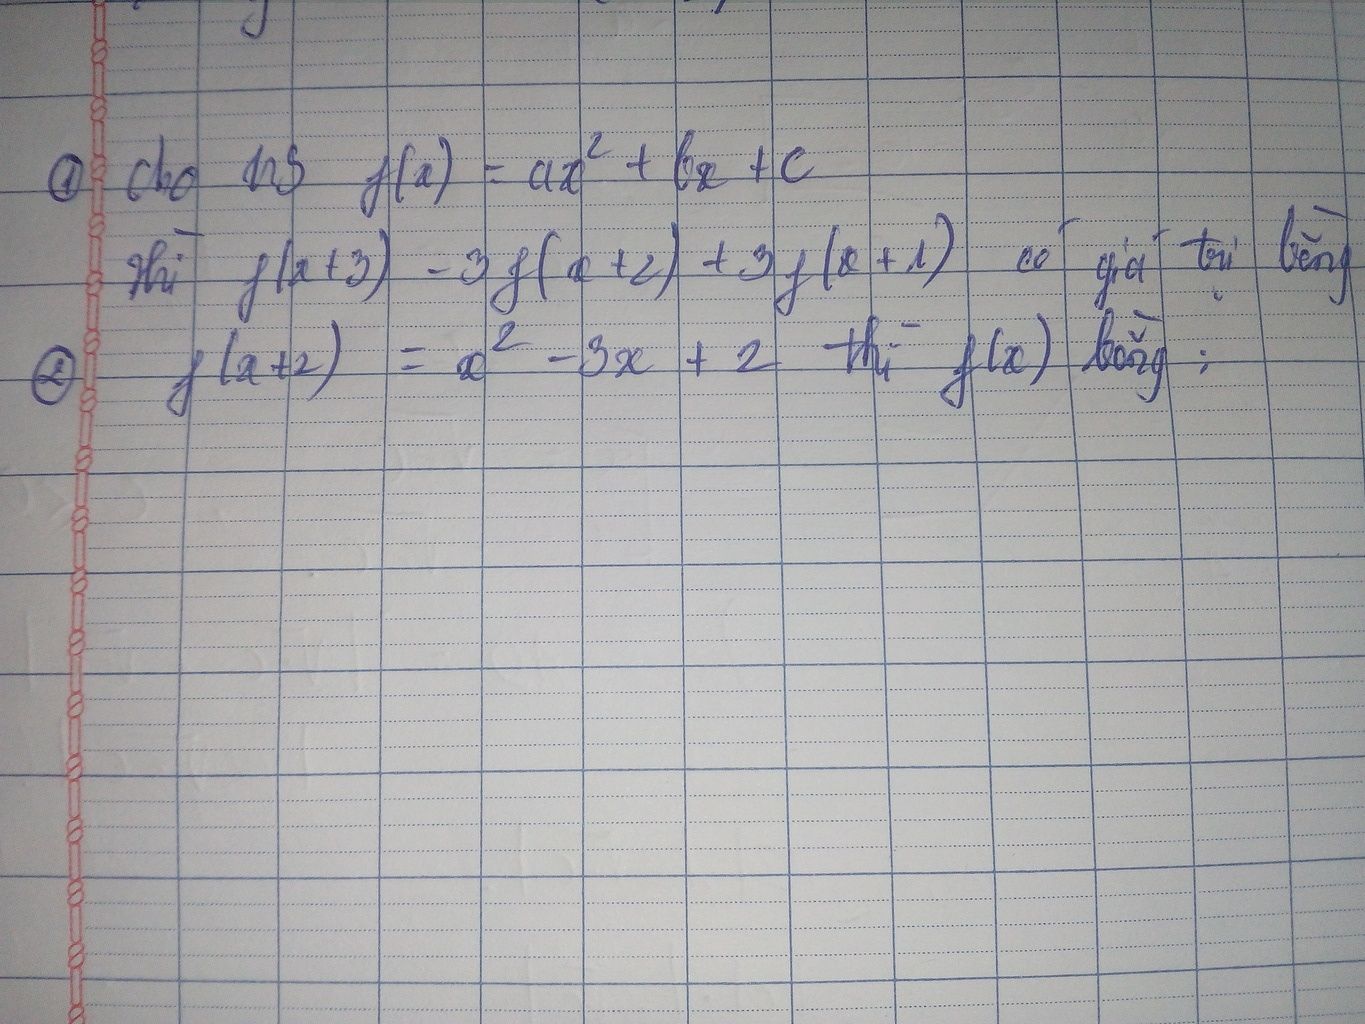 ① Cho hs f(x) = ax² + bx + c
thì f(x+3) - 3f(x+2) + 3f(x+1) có giá trị bằng
② f(x+2) = x² - 3x + 2 thì f(x) bằng :